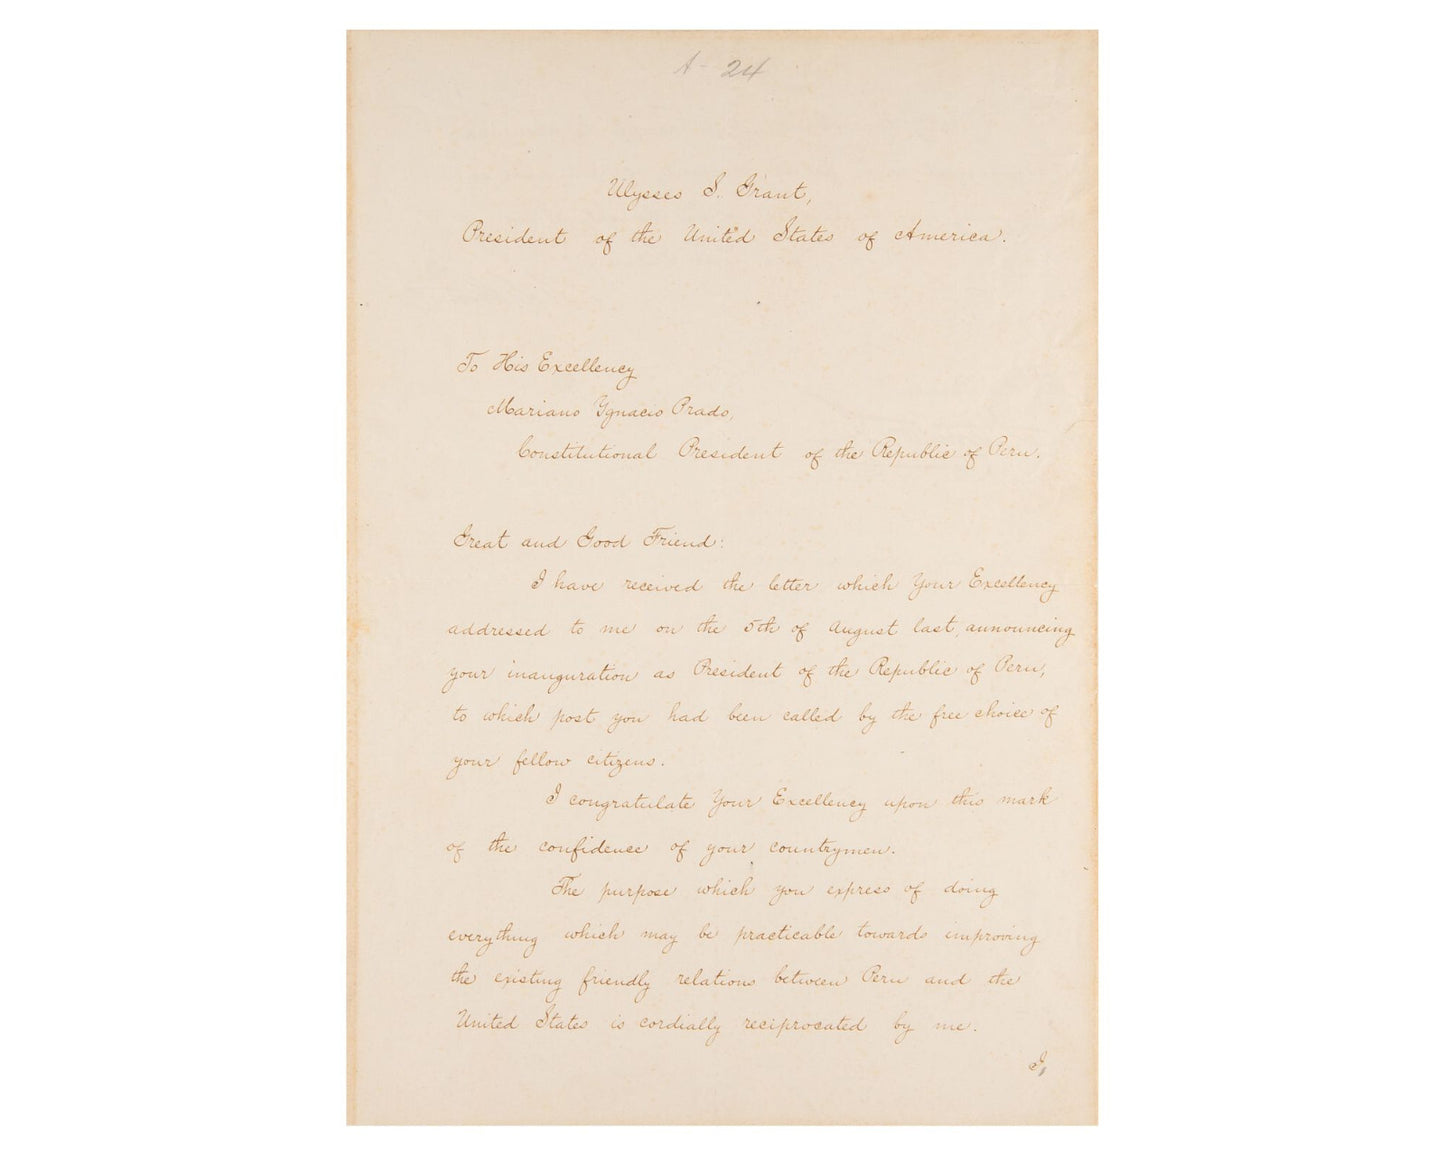 A- 24
Ulysses S. Grant,
President of the United States of America.
To His Excellency
Mariano Ygnacio Prado,
Constitutional President of the Republic of Peru.
Great and Good Friend:
I have received the letter which Your Excellency
addressed to me on the 5th of August last, announcing
your inauguration as President of the Republic of Peru,
to which post you had been called by the free choice of
your fellow citizens.
I congratulate Your Excellency upon this mark
of the confidence of your countrymen.
The purpose which you express of doing
everything which may be practicable towards improving
the existing friendly relations between Peru and the
United States is cordially reciprocated by me.
I,